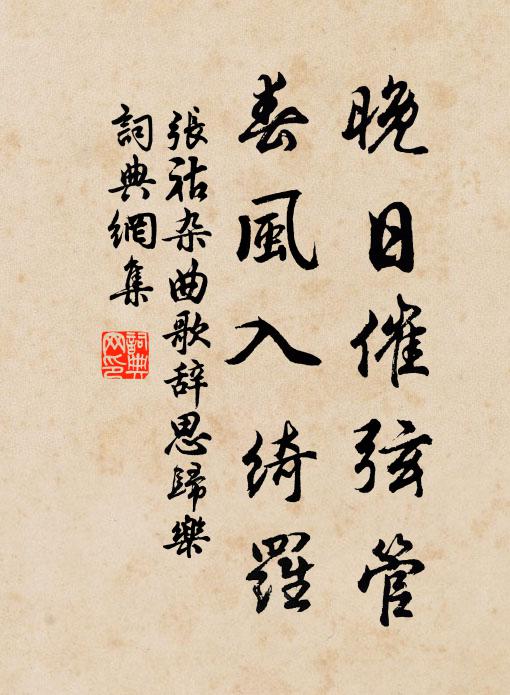 晚日催弦管
春風入綺羅
張祜杂曲歌辞思歸樂
詞典網集
詞典网印